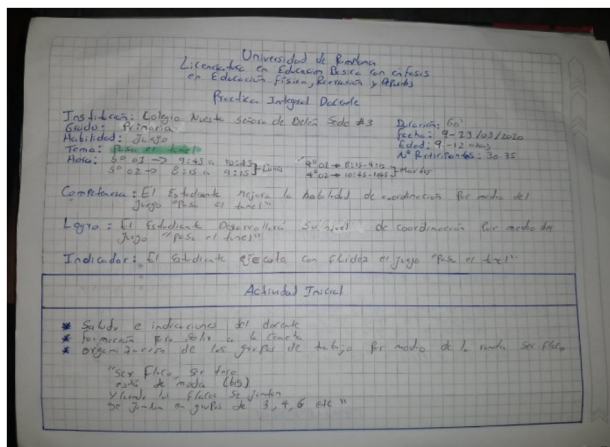 Universidad de Pamplona
Licenciatura en Educación Básica con énfasis
en Educación Física, Recreación y Deportes
Practica Integral Docente
Institución: Colegio Nuestra Señora de Belén Sede #3 Duración: 60'
Grado: Primaria Fecha: 9-13/03/2020
Habilidad: Juego Edad: 9-12 años
Tema: Pasa el tunel Nº Participantes: 30-35
Hora: 5º 01 → 9:45 a 10:45 4º 01 → 8:15-9:15
5º 02 → 8:15 a 9:15 Lunes 4º 02 → 10:45-11:45 Martes
Competencia: El Estudiante mejora la habilidad de coordinación Por medio del
Juego "Pasa el tunel"
Logro: El Estudiante Desarrollará su nivel de coordinación Por medio del
Juego "Pasa el tunel"
Indicador: El Estudiante ejecuta con fluidez el juego "Pasa el tunel"
Actividad Inicial
* Saludo e indicaciones del docente
* Formación para salir a la cancha
* organización de los grupos de trabajo por medio de la ronda ser flaco
"Ser flaco, ser flaco
está de moda (bis)
Y cuando los flacos se juntan
Se juntan en grupos de 3, 4, 6 etc"